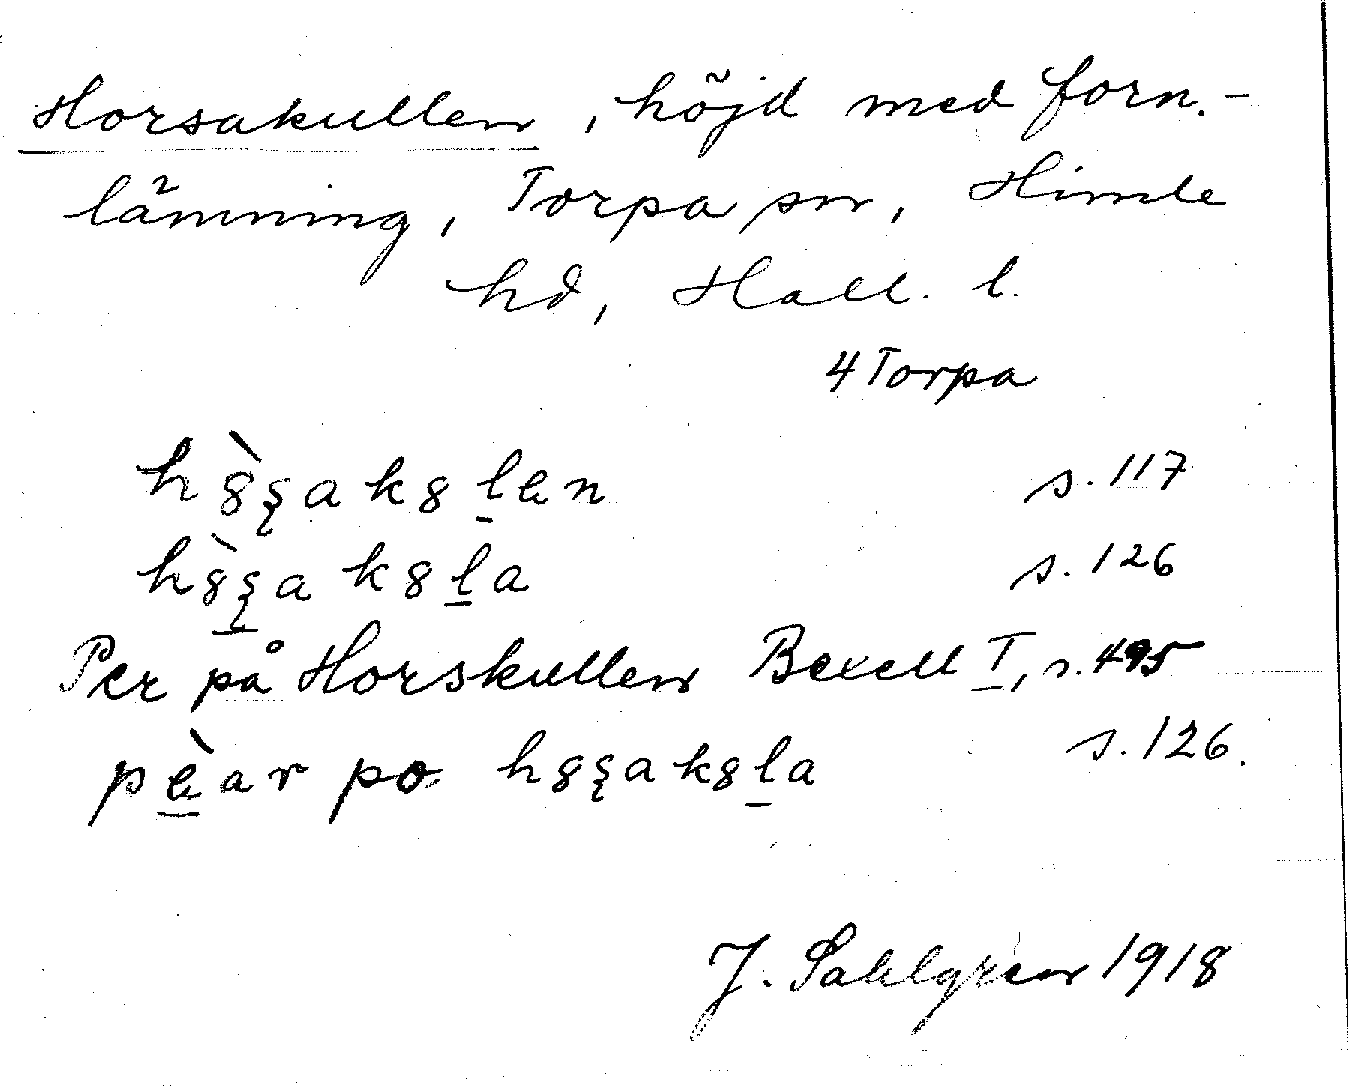 Horsakullen, höjd med forn.-
lämning, Torpa sn, Himle
hd, Hall. l.
4 Torpa
hȣ̀ʂakȣḻen s. 117
hȣ̀ʂakȣḻa s. 126
Per på Horskullen Bexell I, s. 495
pè̱ar po hȣʂakȣḻa s. 126.
J. Sahlgren 1918